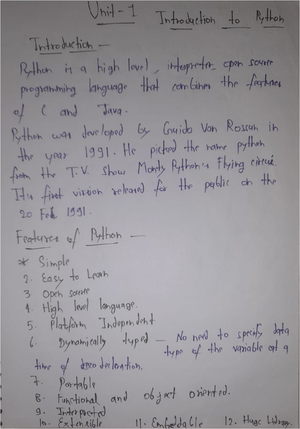 Unit - 1 Introduction to Python
Introduction -
Python is a high level, interpreter, open source
programming language that combines the features
of C and Java.
Python was developed by Guido Van Rossum in
the year 1991. He picked the name python
from the T.V. Show Monty Python's Flying circus.
It's first version released for the public on the
20 Feb 1991.
Features of Python -
* Simple
2. Easy to Learn
3 Open source
4. High level language.
5. Platform Independent
6. Dynamically typed - No need to specify data
type of the variable at a
time of declaration.
7. Portable
8. Functional and object oriented.
9. Interpreted
10. Extensible 11. Embeddable 12. Huge Library